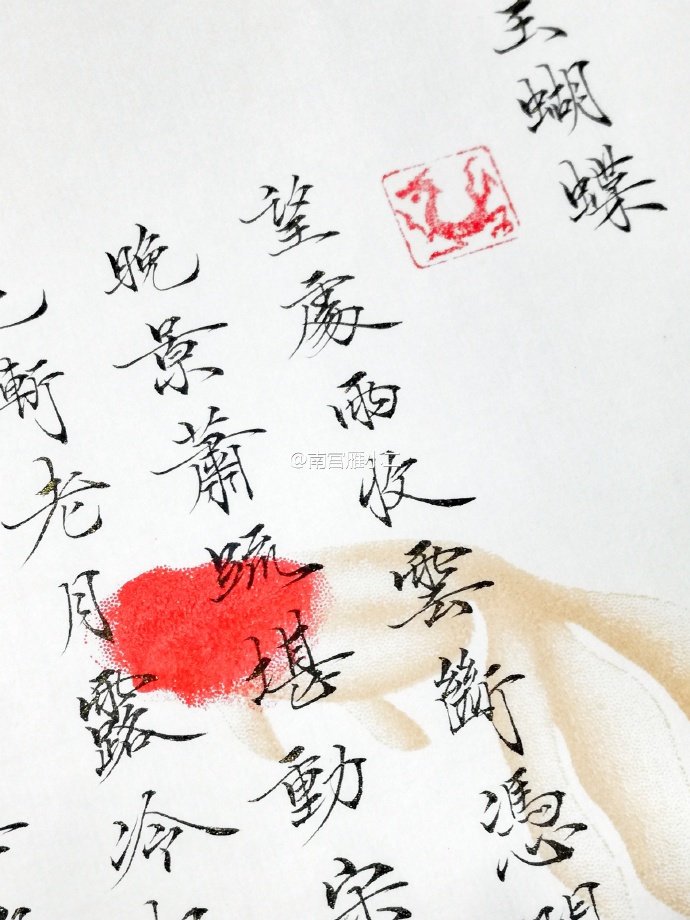 玉蝴蝶
望處雨收雲斷憑
晚景蕭疏堪動宋
漸老月露冷
@南宫雁小二